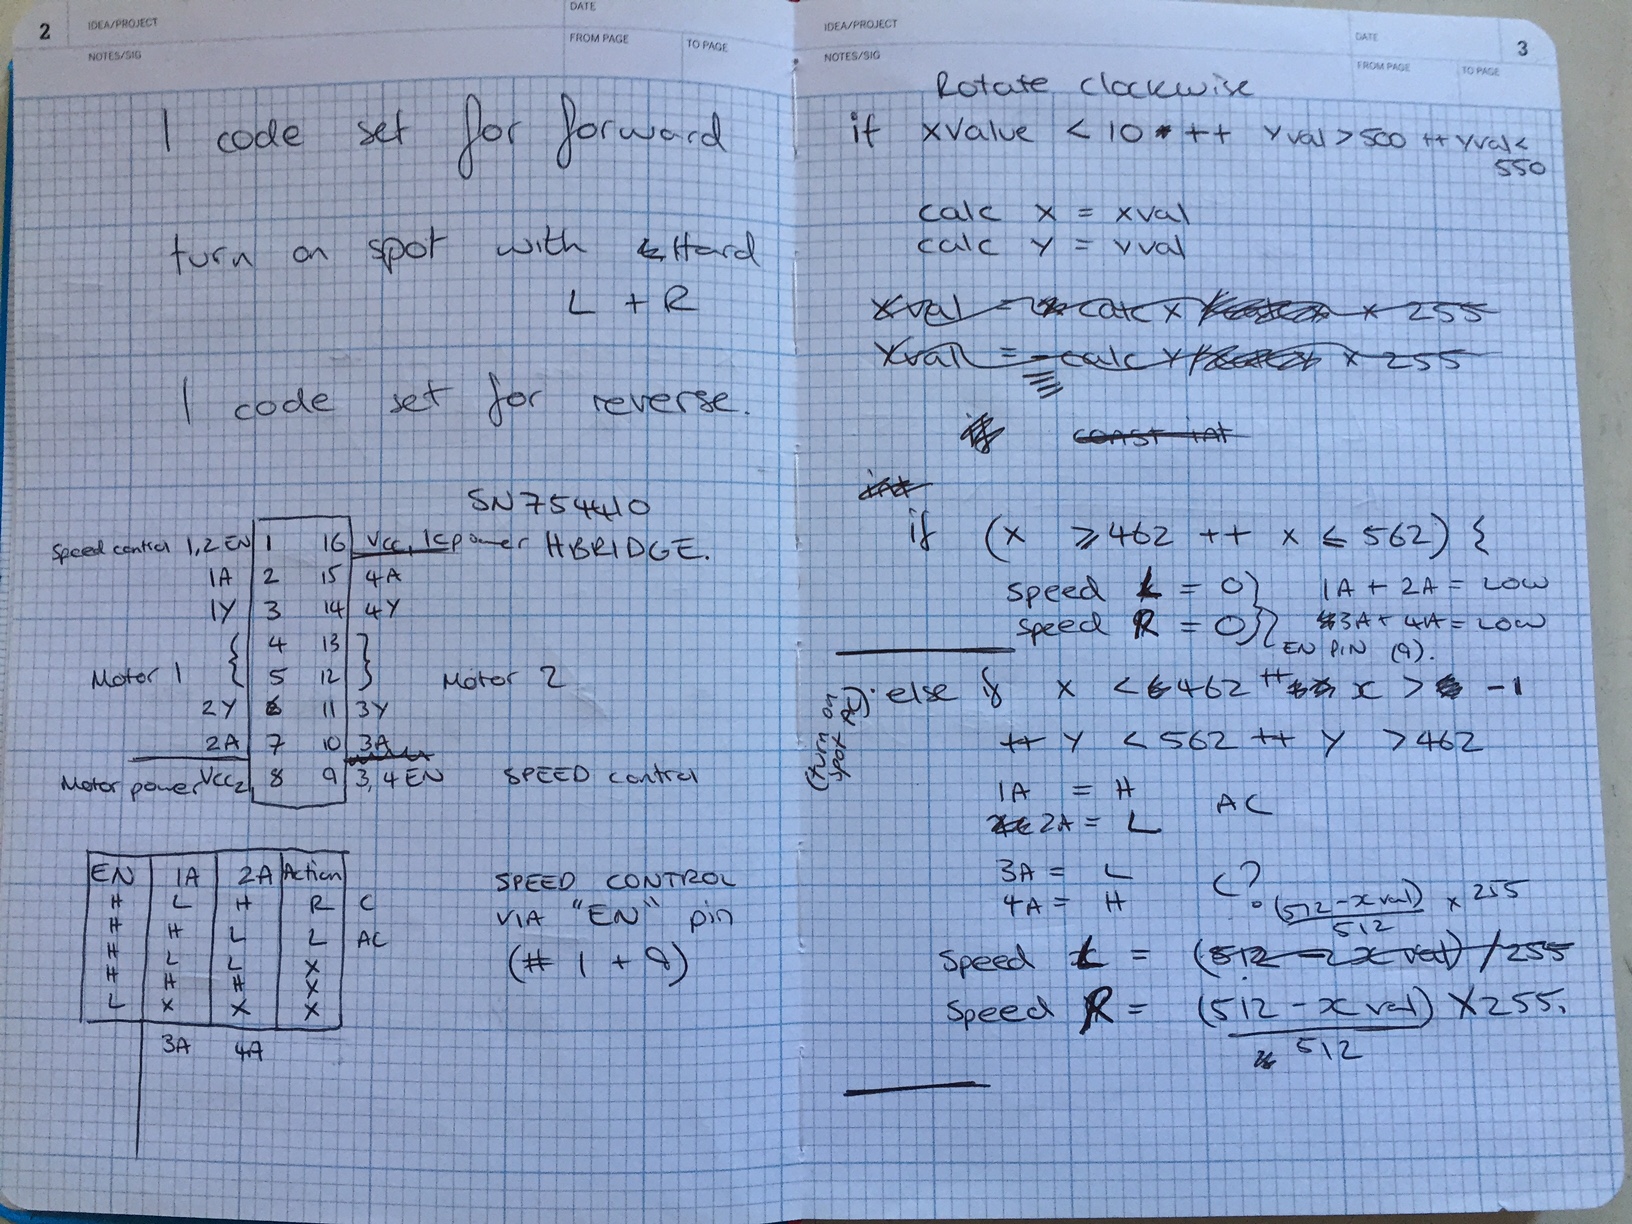 2
IDEA/PROJECT
NOTES/SIG
DATE
FROM PAGE
TO PAGE
1 code set for forward
turn on spot with Hard
L + R
1 code set for reverse.
SN754410
HBRIDGE.
Speed control 1,2 EN 1 16 Vcc, IC power
1A 2 15 4A
1Y 3 14 4Y
4 13
Motor 1 { 5 12 } Motor 2
2Y 6 11 3Y
2A 7 10 3A
Motor power Vcc2 8 9 3,4 EN SPEED control
EN 1A 2A Action
H L H R C
H H L L AC
H L L X
H H H X
L X X X
3A 4A
SPEED CONTROL
VIA "EN" pin
(# 1 + 9)
IDEA/PROJECT
NOTES/SIG
DATE
FROM PAGE
TO PAGE
3
Rotate, clockwise
if xValue < 10 ++ yval > 500 ++ yval <
550
calc x = xval
calc y = yval
xval = calc x x 255
xval = calc y x 255
if
const int
int
if (x ≥ 462 ++ x ≤ 562) {
Speed L = 0 } 1A + 2A = LOW
Speed R = 0 } 3A + 4A = LOW
EN PIN (9).
(turn on
spot
else if x < 462 ++ x > -1
++ y < 562 ++ y > 462
1A = H
2A = L AC
3A = L
4A = H C?
(512 - xval) x 255
512
Speed L = (512 - xval) / 255
Speed R = (512 - xval) x 255.
512